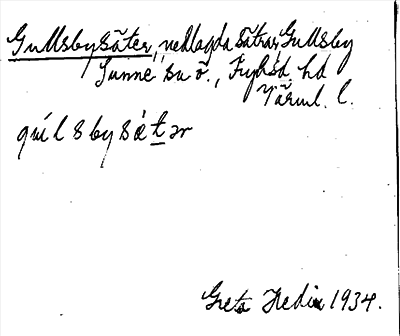 Gullsbysäter, nedlagda sätrar, Gullsby
Sunne sn ö., Fryksd. hd
Värml. l.
gúlsbysætər
Greta Hedin 1934.